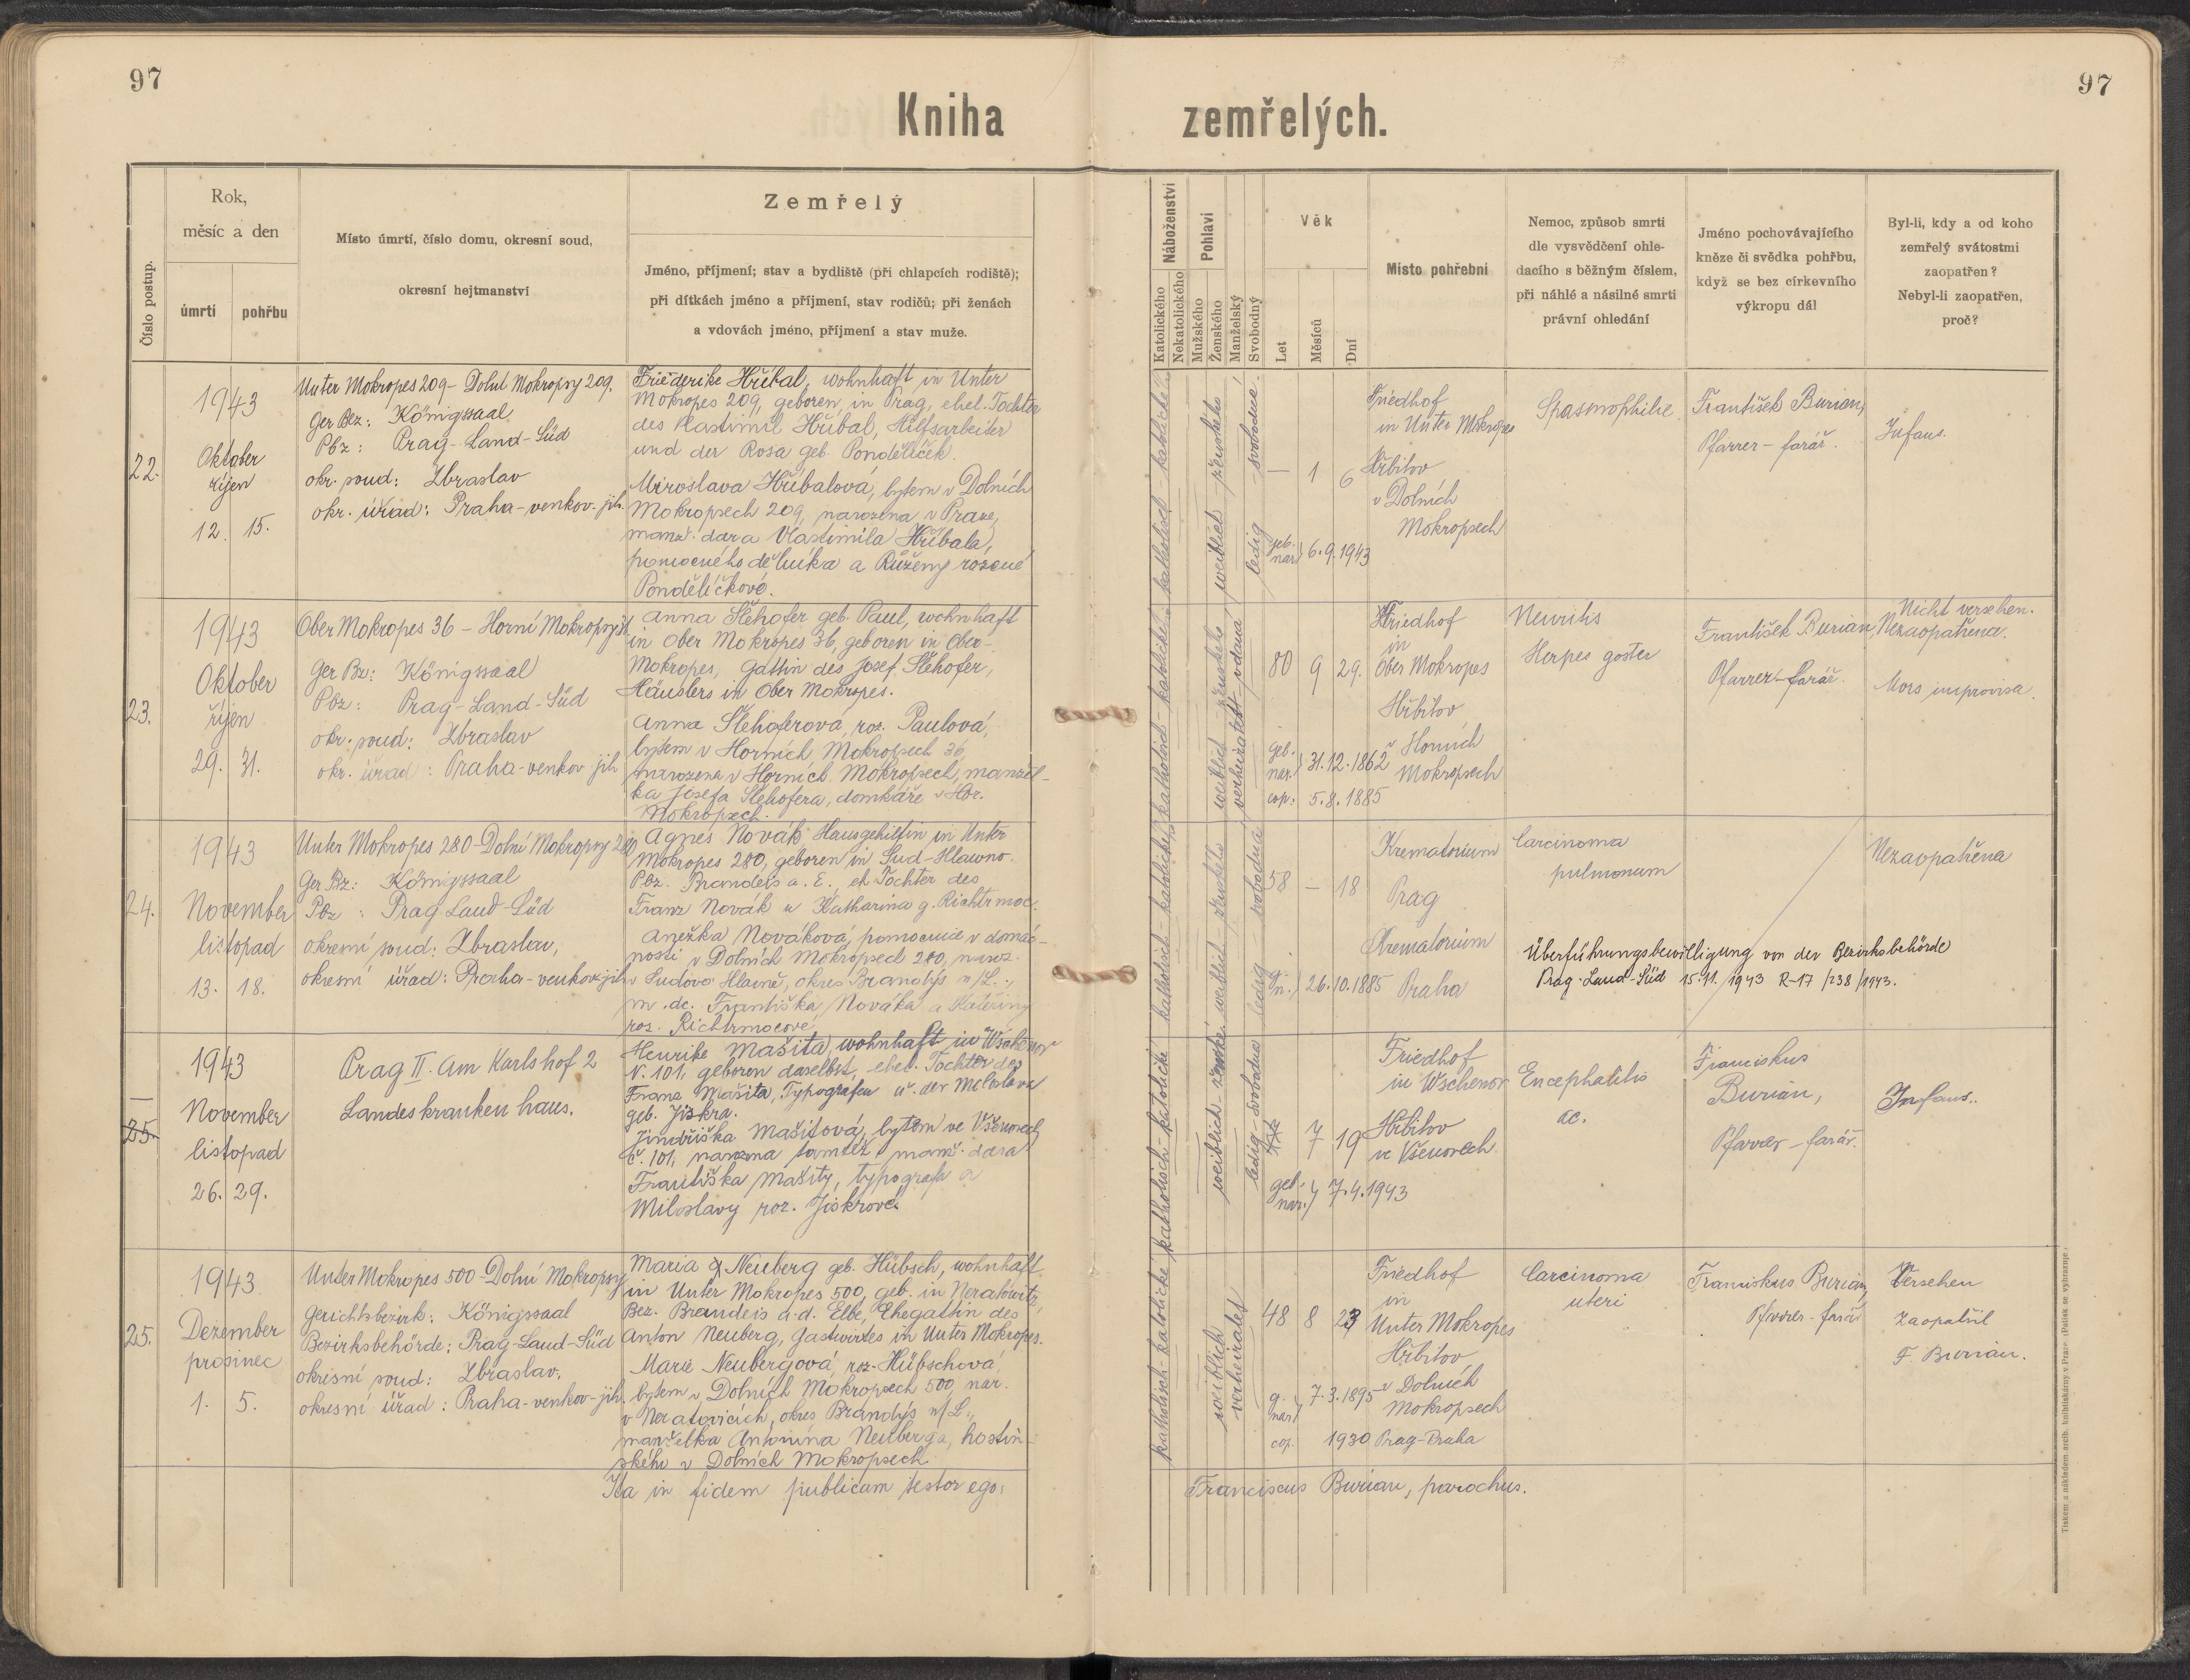 97
97
Kniha zemřelých.
Číslo postup.
Rok,
měsíc a den
úmrtí
pohřbu
Místo úmrtí, číslo domu, okresní soud,
okresní hejtmanství
Zemřelý
Jméno, příjmení; stav a bydliště (při chlapcích rodiště);
při dítkách jméno a příjmení, stav rodičů; při ženách
a vdovách jméno, příjmení a stav muže.
Náboženství
Katolického
Nekatolického
Pohlaví
Mužského
Ženského
Manželský
Svobodný
Věk
Let
Měsíců
Dní
Místo pohřební
Nemoc, způsob smrti
dle vysvědčení ohle-
dacího s běžným číslem,
při náhlé a násilné smrti
právní ohledání
Jméno pochovávajícího
kněze či svědka pohřbu,
když se bez církevního
výkropu dál
Byl-li, kdy a od koho
zemřelý svátostmi
zaopatřen?
Nebyl-li zaopatřen,
proč?
22.
1943
Oktober
říjen
12. 15.
Unter Mokropes 209 - Dolní Mokropsy 209.
Ger Bez: Königsaal
Pbz: Prag-Land-Süd
okr. soud: Zbraslav
okr. úřad: Praha-venkov-jih.
Friederike Hřibal, wohnhaft in Unter
Mokropes 209, geboren in Prag, ehel. Tochter
des Vlastimil Hřibal, Hilfsarbeiter
und der Rosa geb. Pondělíček.
Miroslava Hřibalová, bytem v Dolních
Mokropsech 209, narozena v Praze,
manž. dcra Vlastimila Hřibala,
pomocného dělníka a Růženy rozené
Pondělíčkové.
katholisch - katolické
weiblich - ženské
ledig - svobodná
— 1 6
geb.
nar. 6.9.1943
Friedhof
in Unter Mokropes
Hřbitov
v Dolních
Mokropsech
Spasmophilie
František Burian,
Pfarrer - farář.
Infans.
23.
1943
Oktober
říjen
29. 31.
Ober Mokropes 36 - Horní Mokropsy 36
Ger Bz: Königsaal
Pbz: Prag-Land-Süd
okr. soud: Zbraslav
okr. úřad: Praha-venkov-jih
Anna Šlehofer geb. Paul, wohnhaft
in Ober Mokropes 36, geboren in Ober-
Mokropes, Gattin des Josef Šlehofer,
Häuslers in Ober Mokropes.
Anna Šlehoferová, roz. Paulová,
bytem v Horních Mokropsech 36,
narozena v Horních Mokropsech, manžel-
ka Josefa Šlehofera, domkáře v Hor.
Mokropsech.
katholisch - katolické
weiblich - ženské
verheiratet - vdaná
80 9 29.
geb.
nar. 31.12.1862
cop: 5.8.1885
Friedhof
in
Ober Mokropes
Hřbitov
v Horních
Mokropsech
Neuritis
Herpes goster
František Burian,
Pfarrer - farář.
Nicht versehen.
Nezaopatřena.
Mors improvisa.
24.
1943
November
listopad
13. 18.
Unter Mokropes 280 - Dolní Mokropsy 280
Ger Bz: Königsaal
Pbz: Prag Land-Süd
okresní soud: Zbraslav,
okresní úřad: Praha-venkov-jih
Agnes Novák Hausgehilfin in Unter
Mokropes 280, geboren in Sud-Hlawno.
Pbz. Brandeis a. E., eh. Tochter des
Franz Novák u Katharina g. Richtrmoc.
Anežka Nováková, pomocnice v domác-
nosti v Dolních Mokropsech 280, naroz.
v Sudovo Hlavně, okres Brandýs n/L.,
m. dc. Františka Nováka a Kateřiny
roz. Richtrmocové.
katholisch - katolické
weiblich - ženské
ledig - svobodná
58 — 18
g.
n. 26.10.1885
Krematorium
Prag
Krematorium
Praha
Carcinoma
pulmonum
Nezaopatřena
Überführungsbewilligung von der Bezirksbehörde
Prag-Land-Süd 15.11. 1943 R-17 /238/1943.
25.
1943
November
listopad
26. 29.
Prag II. Am Karlshof 2
Landeskrankenhaus.
Henrike Mašita, wohnhaft in Wschenor
N. 101, geboren daselbst, ehel. Tochter des
Franz Mašita, Typografen u. der Miloslava
geb. Jiskra.
Jindřiška Mašitová, bytem ve Všenorech
č. 101, narozena tamtéž, manž. dcra
Františka Mašity, typografa a
Miloslavy roz. Jiskrové.
katholisch - katolické
weiblich - ženské
ledig - svobodná
7 19
geb.
nar. 7.4.1943
Friedhof
in Wschenor
Hřbitov
ve Všenorech
Encephalitis
ac.
Franciskus
Burian,
Pfarrer - farář.
Infans..
25.
1943
Dezember
prosinec
1. 5.
Unter Mokropes 500 - Dolní Mokropsy
Gerichtsbezirk: Königsaal
Bezirksbehörde: Prag-Land-Süd
okresní soud: Zbraslav,
okresní úřad: Praha-venkov-jih.
Maria Neuberg geb. Hübsch, wohnhaft
in Unter Mokropes 500, geb. in Neratowitz,
Bez. Brandeis a.d. Elbe, Ehegattin des
Anton Neuberg, Gastwirtes in Unter Mokropes.
Marie Neubergová, roz. Hübschová,
bytem v Dolních Mokropsech 500, nar.
v Neratovicích, okres Brandýs n/L.,
manželka Antonína Neuberga, hostin-
ského v Dolních Mokropsech
katholisch - katolické
weiblich
verheiratet
48 8 23
g.
nar. 7.3.1895
cop. 1930 Prag-Praha
Friedhof
in
Unter Mokropes
Hřbitov
v Dolních
Mokropsech
Carcinoma
uteri
Franciskus Burian,
Pfarrer - farář
Versehen
zaopatřil
F. Burian.
Ita in fidem publicam testor ego:
Franciscus Burian, parochus.